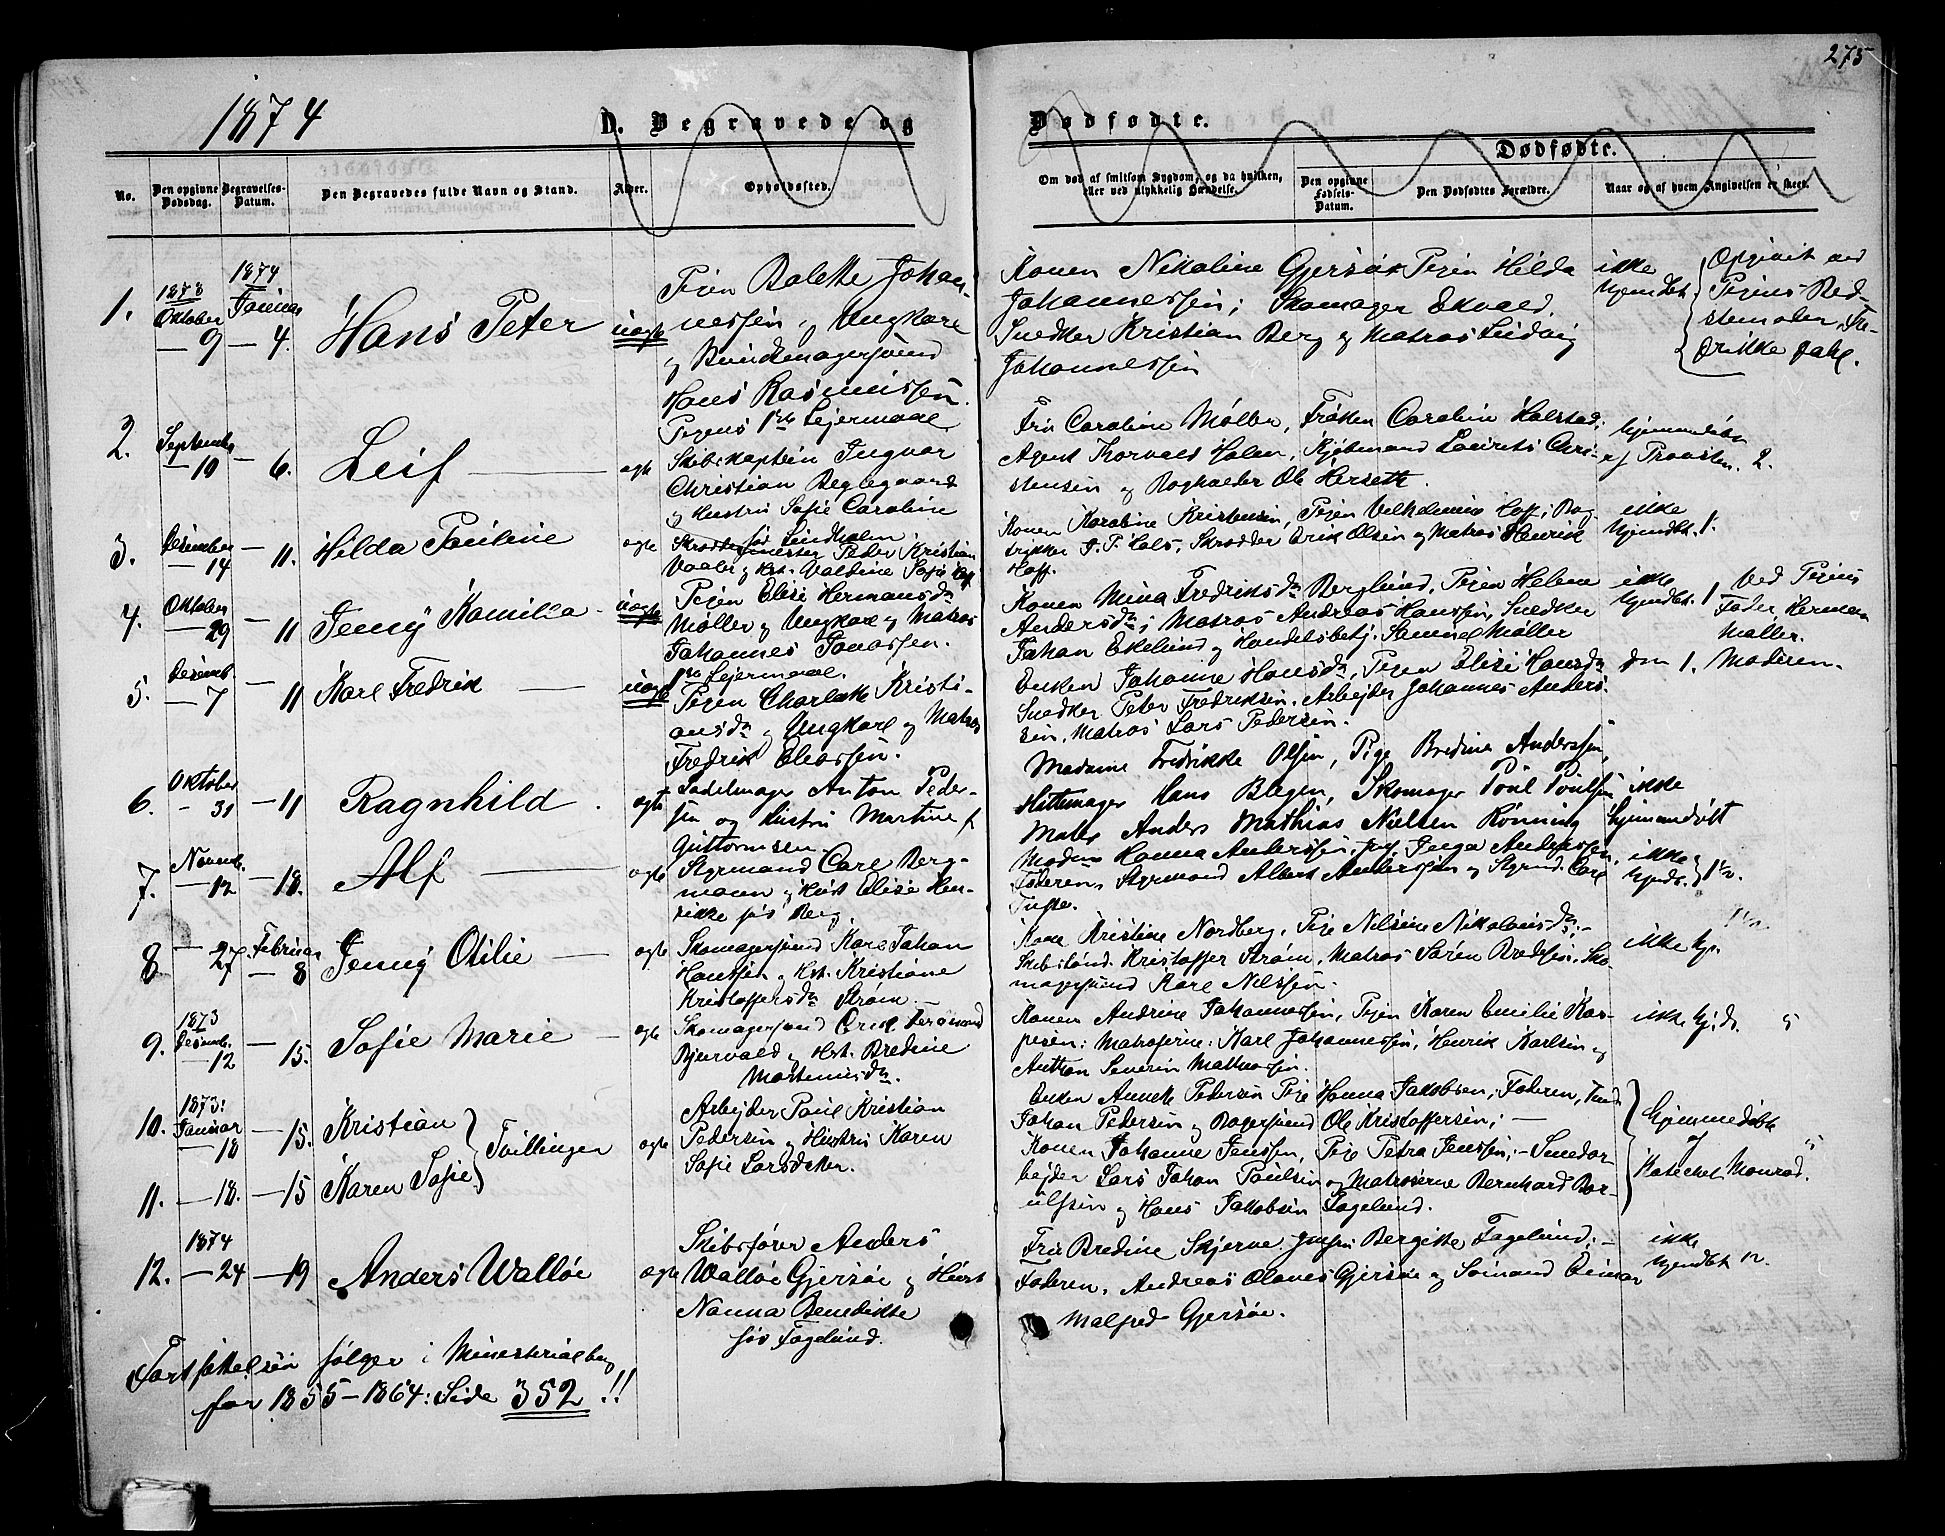 275
1874
D. Begravede og Dødfødte.
Dødfødte.
No.
Den opgivne Dødsdag.
Begravelses-Datum.
Den Begravedes fulde Navn og Stand.
Alder.
Opholdssted.
Om død af smitsom Sygdom, og da hvilken,
eller ved ulykkelig Hændelse.
Den opgivne Fødsels-Datum.
Den Dødfødtes Forældre.
Naar og af hvem Angivelsen er skeet.
1.
1873
Oktober
9
1874
Januar
4.
Hans Peter
uægte
Pigen Bolette Johan-
nessen og Ungkarl
og Hans Rasmussen.
Pigens 1ste Lejermaal
Konen Nikoline Gjersøe Pigen Hilda
Johannessen; Skomager Ekvald,
Snedker Kristian Berg og Matros Ludvig
Johannessen
ikke
hjemdøbt
Opgivet ved
Pigens Bed-
stemoder, Fre-
drikke
2.
September
10
6.
Leif
ægte
Skibskaptein Ingvar
Christian Beglegaard
og Hustru Sofie Caroline
fød Lindholm
Fru Caroline Møller, Frøken Caroline Halstad;
Agent Torvald Holm, Kjøbmand Laurits Chri-
stensen og Bogholder Ole Herseth.
hjemmedøbt
af Provsten. 2.
3.
Desember
14
11.
Hilda Pauline
ægte
Skræddermester Peder Kristian
Vaaler og Hst. Valdine Sofie
Konen Karoline Kristensen, Pigen Vilhelmine Hoff; Bog-
trykker J. P. Hals, Skrædder Erik Olsen og Matros Henrik
Hoff.
ikke
hjemdbt. 1.
4.
Oktober
29
11
Jenny Kamilla
uægte
Pigen Elise Hermansdtr
Møller og Ungkarl og Matros
Johannes Jonassen.
1ste Lejermaal.
Konen Mina Fredriksdtr Berglund, Pigen Helene
Andersdtr; Matros Andreas Hanssen, Snedker
Johan Ekelund og Handelsbetj. Samuel Møller
ikke
hjemdbt. 1
Ved Pigens
Fader Herman
Møller.
5.
Desemb.
7
11
Karl Fredrik
uægte
Pigen Charlotte Kristi-
ansdtr og Ungkarl og Matros
Fredrik Eliassen.
Enken Johanne Hansdtr, Pigen Elise Hansdtr
Snedker Peter Fredriksen, Arbejder Johannes Anders-
sen, Matros Lars Pedersen.
dem 1. Moderen.
6.
Oktober
31
11
Ragnhild
ægte
Sadelmager Anton Peder-
sen og Hustru Martine f
Guttormsen
Madame Fredrikke Olsen, Pige Bredine Anderssen,
Hattemager Hans Blegen, Skomager Poul Poulsen
Maler Anders Mathias Nielsen Rønning
ikke
hjemmedøbt
7.
Novemb.
12
18.
Alf
ægte
Styrmand Carl Berg-
mann og Hust Elise Hen-
rikke født Berg
Modme Hanna Anderssen, Inga Anderssen,
Faderen, Styrmand Albert Anderssen og Styrmd. Carl
Tufte.
ikke
hjmdt.
8
27
Februar
8
Jenny Otilie
ægte
Skomagersvend Karl Johan
Hanssen og Hst. Kristiane
Kristoffersdtr Strøm.
Kone Kristine Nordberg, Pige Nilsine Nikolaisdtr;
Kristoffer Strøm, Matros Søren Bredesen, Sko-
magersvend Karl Nilssen.
ikke hj.
9.
1873
Desemb.
12
15.
Sofie Marie
ægte
Skomagersvend
Bjurvald og Hst. Bredine
Mortensdtr.
Konen Andrine Johannessen, Pigen Karen Emilie Kas-
persen; Matroserne: Karl Johannessen, Henrik Karlsen og
Anthon Severin Mathiassen.
ikke hjdt.
10.
1873:
Januar
18
15.
Kristian
Tvillinger
ægte
Arbejder Paul Kristian
Pedersen og Hustru Karen
Sofie Larsdatter.
Enken Annette Pedersen Pige Hanna Jakobsen; Faderen,
Johan Pedersen og Bagersvend Ole Kristoffersen;
hjemmedøbt
af
Katechet Monrad
11.
18.
15
Karen Sofie
Konen Johanne Jenssen, Pige Petra Jenssen; Smedar-
bejder Lars Johan Paulsen og Matroserne Bernhard Bor-
ulfsen og Hans Jakobsen Fagelund.
12.
1874
24
19
Anders Walløe
ægte
Skibsfører Anders
Walløe Gjersøe og Hust
Nanna Benedikte
fød Fagelund.
Fru Bredine Skjerve Jomfru Bergitte Fagelund;
Faderen, Andreas Olaves Gjersøe og Sømand Einar
Malfred Gjersøe.
ikke
hjemdbt
Fortsættelsen følger i Ministerialbog
for 1855–1864: Side 352 !!